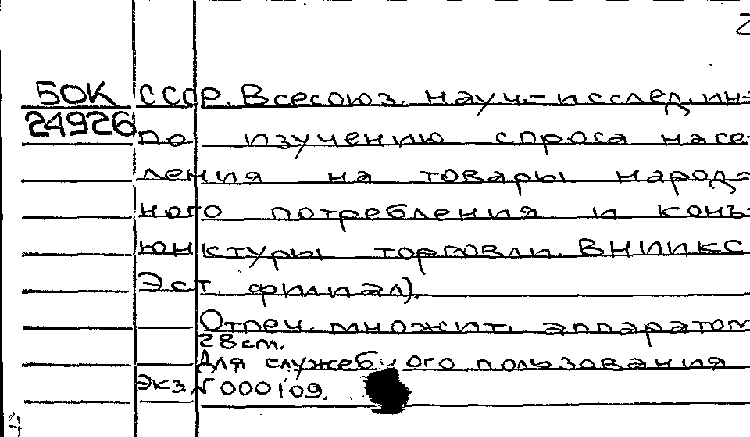 50К СССР. Всесоюз. науч.-исслед. ин-
24926 по изучению спроса насе-
ления на товары народ-
ного потребления и конъ-
юнктуры торговли. ВНИИКС
Эст. филиал).
Отпеч. множит. аппаратом
28 cm.
Для служебного пользования
Экз. № 000109.